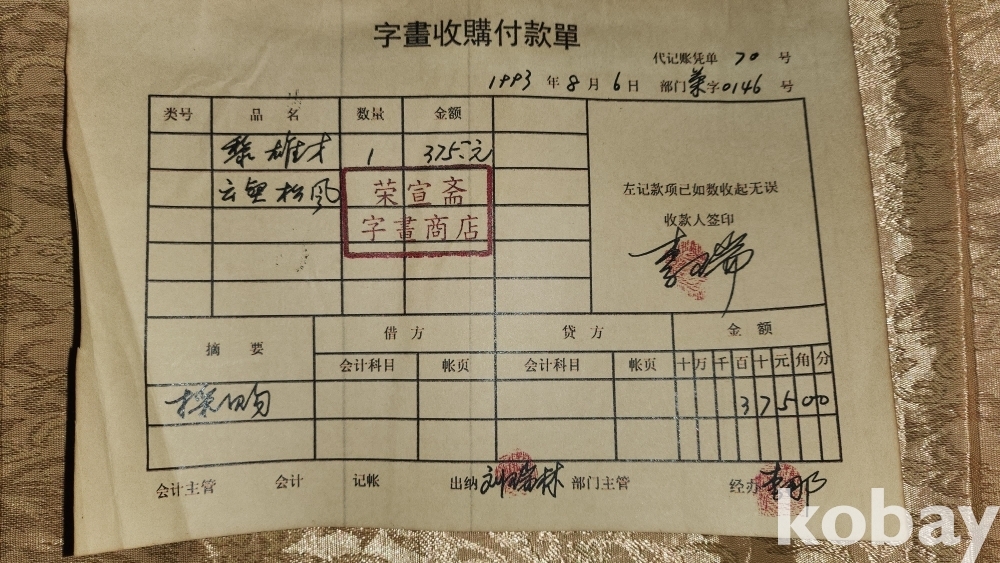 字畫收購付款單
代记账凭单 70 号
1993 年 8 月 6 日 部门 荣 字 0146 号
类号 品名 数量 金额
黎雄才 1 375元
云壑松风
荣宣斋
字畫商店
左记款项已如数收起无误
收款人签印
摘要 借方 贷方 金额
会计科目 帐页 会计科目 帐页 十 万 千 百 十 元 角 分
採购 3 7 5 0 0
会计主管 会计 记帐 出纳 刘瑞林 部门主管 经办
kobay